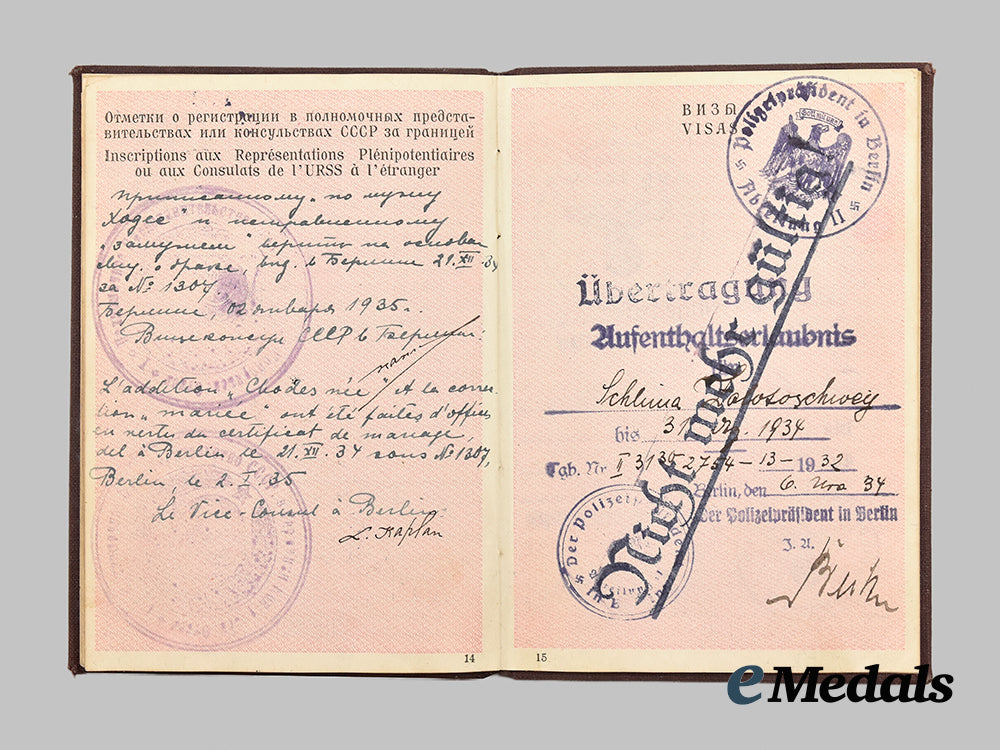 Отметки о регистрации в полномочных предста-
вительствах или консульствах СССР за границей
Inscriptions aux Représentations Plénipotentiaires
ou aux Consulats de l'URSS à l'étranger
Приписанному „по мужу
Ходес" и исправленному
„замужем" верить на основан
свид. о браке, выд. в Берлине 21.XII.34
за № 1307
Берлин, 02 января 1935 г.
Вицеконсул СССР в Берлине:
L'addition „Chodes née" et la correc
tion „mariée" ont été faites d'office
en vertu du certificat de mariage,
dél. à Berlin le 21.XII.34 sous № 1307,
Berlin, le 2.I.35
Le Vice-Consul à Berlin
L. Kaplan
14
ВИЗЫ
VISAS
Polizeipräsident in Berlin
Abteilung II
Übertragung
Aufenthaltserlaubnis
Schlima
bis 31. 1934
Tgb. Nr II 3135 2754-13-1932
Berlin, den 6. 34
Der Polizeipräsident in Berlin
J. A.
Nicht mehr gültig!
Der Polizeipräsident
15
eMedals